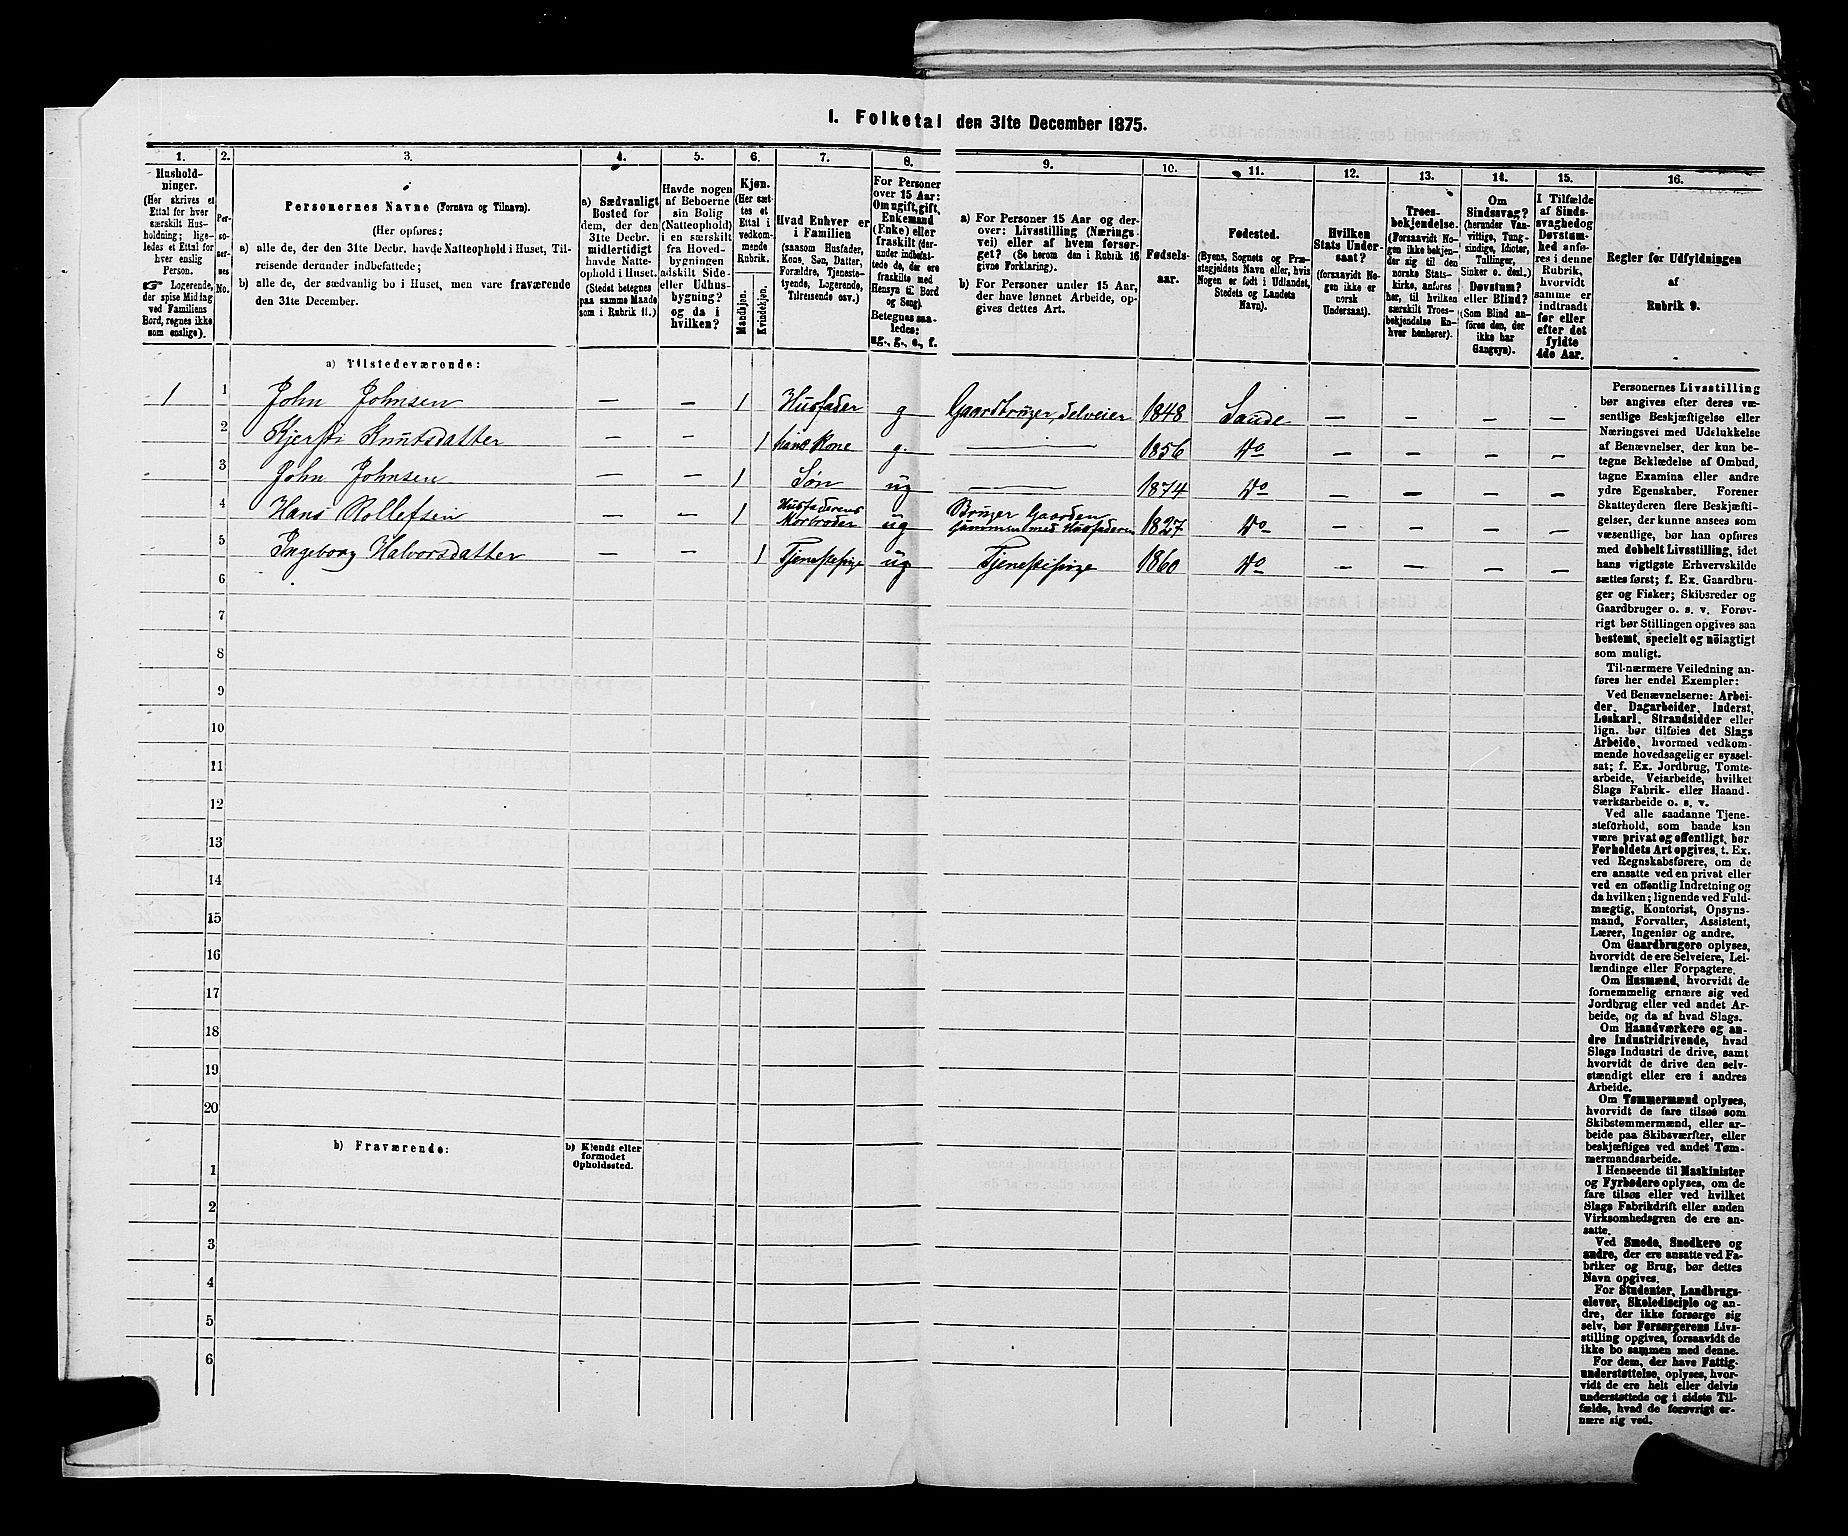 1. Folketal den 31te December 1875.
1.
2.
3.
4.
5.
6.
7.
8.
9.
10.
11.
12.
13.
14.
15.
16.
Hushold-
ninger.
(Her skrives et
Ettal for hver
særskilt Hus-
holdning; lige-
ledes et Ettal for
hver enslig
Person.
☞ Logerende,
der spise Middag
ved Familiens
Bord, regnes ikke
som enslige).
Per-
so-
ner-
nes
No.
Personernes Navne (Fornavn og Tilnavn).
(Her opføres:
a) alle de, der den 31te Decbr. havde Natteophold i Huset, Til-
reisende derunder indbefattede;
b) alle de, der sædvanlig bo i Huset, men vare fraværende
den 31te December.
a) Sædvanligt
Bosted for
dem, der den
31te Decbr.
midlertidigt
havde Natte-
ophold i Huset.
(Stedet betegnes
paa samme Maade
som i Rubrik 11.)
Havde nogen
af Beboerne
sin Bolig
(Natteophold)
i en særskilt
fra Hoved-
bygningen
adskilt Side-
eller Udhus-
bygning?
og da i
hvilken?
Kjøn.
(Her sæt-
tes et
Ettal i
vedkom-
mende
Rubrik.
Mandkjøn.
Kvindekjøn.
Hvad Enhver er
i Familien
(saasom Husfader,
Kone, Søn, Datter,
Forældre, Tjeneste-
tyende, Logerende,
Tilreisende osv.)
For Personer
over 15 Aar:
Om ugift, gift,
Enkemand
(Enke) eller
fraskilt (der-
under indbefat-
tede de, der ere
fraskilte med
Hensyn til Bord
og Seng).
Betegnes saa-
ledes:
ug., g., e., f.
a) For Personer 15 Aar og der-
over: Livsstilling (Nærings-
vei) eller af hvem forsør-
get? (Se herom den i Rubrik 16
givne Forklaring).
b) For Personer under 15 Aar,
der have lønnet Arbeide, op-
gives dettes Art.
Fødsels-
aar.
Fødested.
(Byens, Sognets og Præ-
stegjeldets Navn eller, hvis
Nogen er født i Udlandet,
Stedets og Landets
Navn).
Hvilken
Stats Under-
saat?
(forsaavidt No-
gen ikke er
norsk
Undersaat).
Troes-
bekjendelse.
(Forsaavidt No-
gen ikke bekjen-
der sig til den
norske Stats-
kirke, anføres
her, til hvilken
særskilt Troes-
bekjendelse En-
hver henhører).
Om
Sindssvag?
(herunder Van-
vittige, Tung-
sindige, Idioter,
Tullinger,
Sinker o. desl.)
Døvstum?
eller Blind?
(Som Blind an-
føres den, der
ikke har
Gangsyn).
I Tilfælde
af Sinds-
svaghed og
Døvstum-
hed anfø-
res i denne
Rubrik,
hvorvidt
samme er
indtraadt
før eller
efter det
fyldte
4de Aar.
Regler for Udfyldningen
af
Rubrik 9.
a) Tilstedeværende:
1 1 John Johnsen — — 1 Husfader g Gaardbruger, selveier 1848 Saude — — — —
2 Kjersti Knutsdatter — — 1 hans Kone g. — 1856 Do — — — —
3 John Johnsen — — 1 Søn ug — 1874 Do — — — —
4 Hans Rollefsen — — 1 Husfaderens Morbroder ug Bruger Gaarden sammen med Husfaderen 1827 Do — — — —
5 Ingeborg Halvorsdatter — — 1 Tjenestepige ug Tjenestepige 1860 Do — — — —
6
7
8
9
10
11
12
13
14
15
16
17
18
19
20
b) Fraværende:
b) Kjendt eller
formodet
Opholdssted.
1
2
3
4
5
6
Personernes Livsstilling
bør angives efter deres væ-
sentlige Beskjæftigelse eller
Næringsvei med Udelukkelse
af Benævnelser, der kun be-
tegne Beklædelse af Ombud,
tagne Examina eller andre
ydre Egenskaber. Forener
Skatteyderen flere Beskjæfti-
gelser, der kunne ansees som
væsentlige, bør han opføres
med dobbelt Livsstilling, idet
hans vigtigste Erhvervskilde
sættes først; f. Ex. Gaardbru-
ger og Fisker; Skibsreder og
Gaardbruger o. s. v. Forøv-
rigt bør Stillingen opgives saa
bestemt, specielt og nöiagtigt
som muligt.
Til nærmere Veiledning an-
føres her endel Exempler:
Ved Benævnelserne: Arbei-
der, Dagarbeider, Inderst,
Løskarl, Strandsidder eller
lign. bør tilføies det Slags
Arbeide, hvormed vedkom-
mende hovedsagelig er syssel-
sat; f. Ex. Jordbrug, Tomte-
arbeide, Veiarbeide, hvilket
Slags Fabrik- eller Haand-
værksarbeide o. s. v.
Ved alle saadanne Tjene-
steforhold, som baade kan
være privat og offentligt, bør
Forholdets Art opgives, t. Ex.
ved Regnskabsførere, om de
ere ansatte ved en privat eller
ved en offentlig Indretning og
da hvilken; lignende ved Fuld-
mægtig, Kontorist, Opsyns-
mand, Forvalter, Assistent,
Lærer, Ingeniør og andre.
Om Gaardbrugere oplyses,
hvorvidt de ere Selveiere, Lei-
lændinge eller Forpagtere.
Om Husmænd, hvorvidt de
fornemmelig ernære sig ved
Jordbrug eller ved andet Ar-
beide, og da af hvad Slags.
Om Haandværkere og an-
dre Industridrivende, hvad
Slags Industri de drive, samt
hvorvidt de drive den selv-
stændigt eller ere i andres
Arbeide.
Om Tømmermænd oplyses,
hvorvidt de fare tilsøs som
Skibstømmermænd, eller ar-
beide paa Skibsværfter, eller
beskjæftiges ved andet Tøm-
mermandsarbeide.
I Henseende til Maskinister
og Fyrbødere oplyses, om de
fare tilsøs eller ved hvilket
Slags Fabrikdrift eller anden
Virksomhedsgren de ere an-
satte.
Ved Smede, Snedkere og
andre, der ere ansatte ved Fa-
briker og Brug, bør dettes
Navn opgives.
For Studenter, Landbrugs-
elever, Skoledisciple og an-
dre, der ikke forsørge sig
selv, bør Forsørgerens Livs-
stilling opgives, forsaavidt de
ikke bo sammen med denne.
For dem, der have Fattig-
understøttelse, oplyses, hvor-
vidt de ere helt eller delvis
understøttede og i sidste Til-
fælde, hvad de forøvrigt er-
nære sig ved.